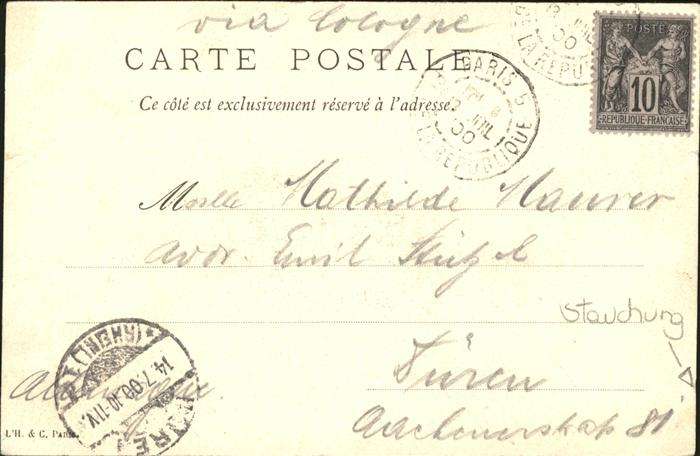 via Cologne
CARTE POSTALE
Ce côté est exclusivement réservé à l'adresse.
PARIS 5
JUIL
00
LA REPUBLIQUE
JUIL
00
LA REPU
POSTE
10
REPUBLIQUE FRANÇAISE
Moselle Mathilde Maurer
Adr. Emil
Stauchung
Düren
Aachenerstr. 81.
(RHEINL)
14.7.00.10-11V.
L'H. & C., Paris.